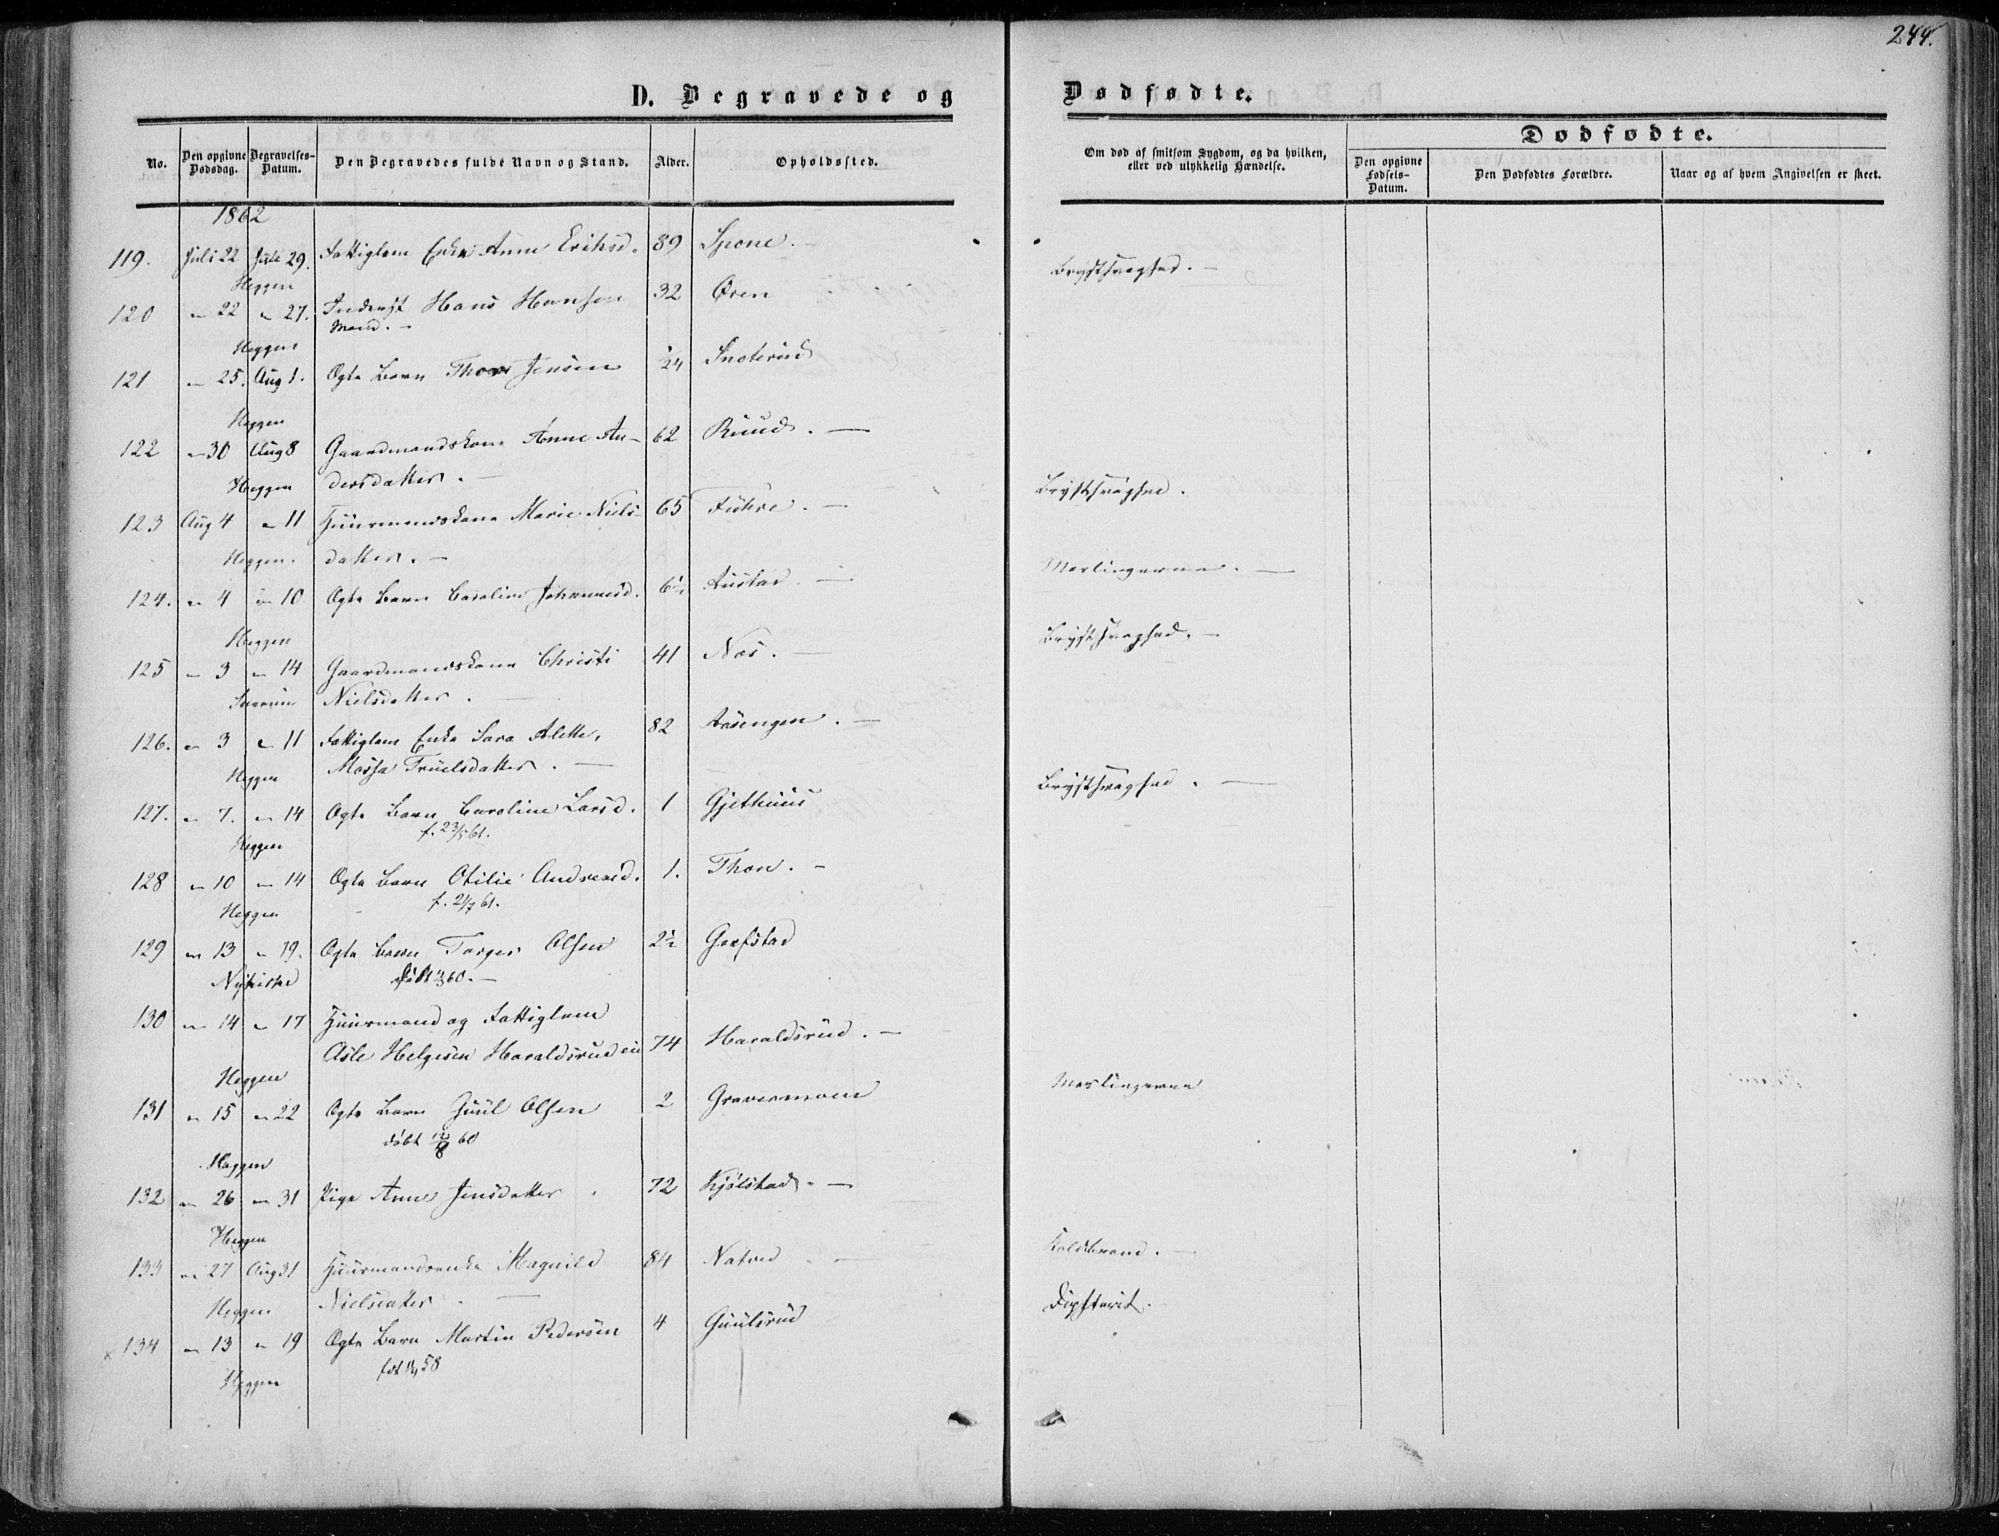 244.
D. Begravede og Dødfødte.
Dødfødte.
No. Den opgivne Dødsdag. Begravelses-Datum. Den Begravedes fulde Navn og Stand. Alder. Opholdssted. Om død af smitsom Sygdom, og da hvilken, eller ved ulykkelig Hændelse. Den opgivne Fødsels-Datum. Den Dødfødtes Forældre. Naar og af hvem Angivelsen er skeet.
1862
119. Juli 22 Juli 29. Fattiglem Enke Anne Eriksd. 89 Spone. Brystsvaghed.
Heggen
120 " 22 " 27. Inderst Hans Hansen 32 Øren
Mand.
Heggen
121 " 25. Aug 1. Ægte Barn Thor Jensen 1/24 Snoterud
Heggen
122 " 30 Aug 8 Gaardmandskone Anne An- 62 Ruud.
Heggen dersdatter. Brystsvaghed.
123 Aug 4 " 11 Huusmandskone Marie Niels- 65 Fuhre.
Heggen. datter. Meslingerne.
124. " 4 " 10 Ægte Barn Caroline Johannesd. 6½ Austad.
Heggen Brystsvaghed.
125 " 3 " 14 Gaardmandskone Christi 41 Næs.
Snarum Nielsdatter.
126. " 3 " 11 Fattiglem Enke Sara Alette, 82 Aasengen.
Heggen Massa Truelsdatter. Brystsvaghed.
127. " 7. " 14 Ægte Barn Caroline Larsd. 1 Gjethuus
Heggen f. 23/5 61.
128 " 10 " 14 Ægte Barn Otilie Andreasd. 1. Thon.
Heggen f. 21/7 61.
129 " 13 " 19. Ægte Barn Torger Olsen 2½ Grefstad
Nykirke
130 " 14 " 17 Huusmand og Fattiglem
Asle Helgesen Haraldsrudeie 74 Haraldsrud.
Heggen Meslingerne
131 " 15 " 22 Ægte Barn Juul Olsen 2 Gravermoen
døbt 12/8 60
Heggen
132 " 26 " 31 Pige Anne Jensdatter. 72 Kjølstad.
Heggen Koldbrand.
133 " 27 Aug 31 Huusmandsenke Magnild 84 Natved
Heggen Nielsdatter. Difterit.
134 " 13 " 19 Ægte Barn Martin Pedersen 4 Guulsrud
Heggen